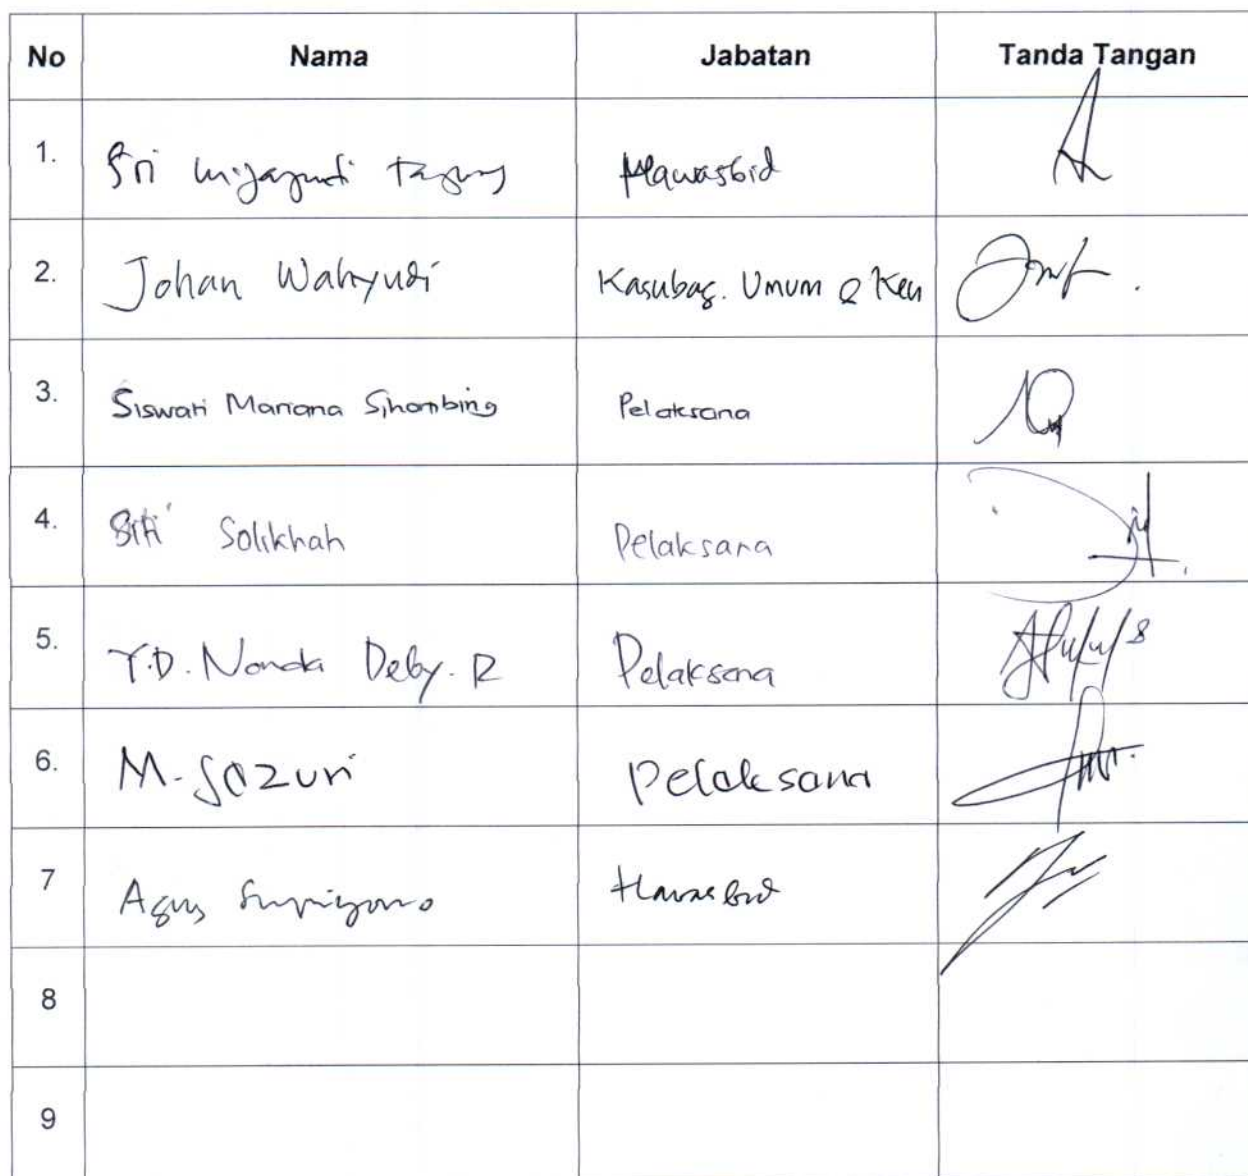 No Nama Jabatan Tanda Tangan
1. Sri Hawasbid
2. Johan Wahyudi Kasubag. Umum & Keu
3. Siswati Mariana Sihombing Pelaksana
4. Siti Solikhah Pelaksana
5. Y.D. Nanda Deby. R Pelaksana
6. M. Sazuri Pelaksana
7 Agus Supriyono Hawasbid
8
9